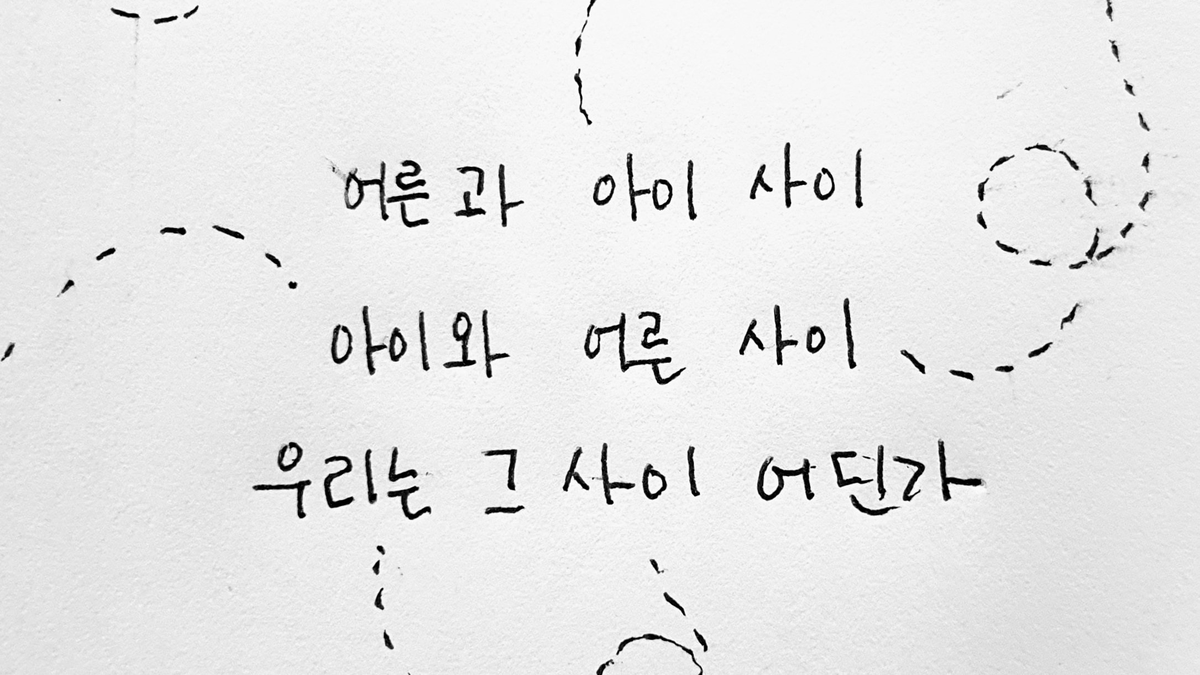 어른과 아이 사이
아이와 어른 사이
우리는 그 사이 어딘가